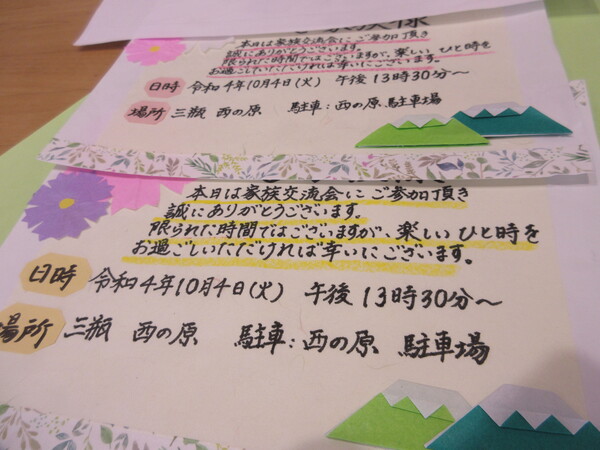 ご家族様
本日は家族交流会にご参加頂き
誠にありがとうございます。
限られた時間ではございますが、楽しいひと時を
お過ごしいただければ幸いにございます。
日時 令和4年10月4日(火) 午後13時30分〜
場所 三瓶 西の原 駐車:西の原 駐車場
本日は家族交流会にご参加頂き
誠にありがとうございます。
限られた時間ではございますが、楽しいひと時を
お過ごしいただければ幸いにございます。
日時 令和4年10月4日(火) 午後13時30分〜
場所 三瓶 西の原 駐車:西の原 駐車場